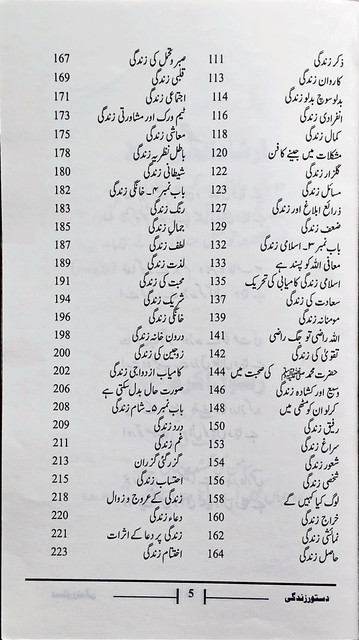 ذکر زندگی 111
کاروان زندگی 113
بدلو سوچ بدلو زندگی 114
انفرادی زندگی 116
کمال زندگی 118
مشکلات میں جینے کا فن 120
گلزار زندگی 122
مسائل زندگی 123
ذرائع ابلاغ اور زندگی 127
ضعف زندگی 129
باب نمبر ۳۔ اسلامی زندگی 132
معافی اللہ کو پسند ہے 133
اسلامی زندگی کامیابی کی تحریک 135
سعادت کی زندگی 137
مومنانہ زندگی 139
اللہ راضی تو جگ راضی 141
تقویٰ کی زندگی 142
حضرت محمد ﷺ کی صحبت میں 144
وسیع اور کشادہ زندگی 146
کرلو ان کو مٹھی میں 148
رفیق زندگی 150
سراغ زندگی 153
شعور زندگی 154
شخصی زندگی 156
لوگ کیا کہیں گے 158
خراج زندگی 160
نمائشی زندگی 162
حاصل زندگی 164
صبر و تحمل کی زندگی 167
قلبی زندگی 169
اجتماعی زندگی 171
ٹیم ورک اور مشاورتی زندگی 173
معاشی زندگی 175
باطل نظریہ زندگی 178
شیطانی زندگی 180
باب نمبر ۴۔ خانگی زندگی 182
رنگ زندگی 183
جمال زندگی 185
لطف زندگی 187
لذت زندگی 189
محبت کی زندگی 191
شریک زندگی 194
خانگی زندگی 196
درون خانہ زندگی 198
زوجین کی زندگی 200
کامیاب ازدواجی زندگی 202
صورت حال بدل سکتی ہے 206
باب نمبر ۵۔ شام زندگی 208
درد زندگی 209
غم زندگی 211
گزر گئی گزران 213
احتساب زندگی 215
زندگی کے عروج و زوال 218
دعاء زندگی 220
زندگی پر دعا کے اثرات 221
اختتام زندگی 223
دستور زندگی 5